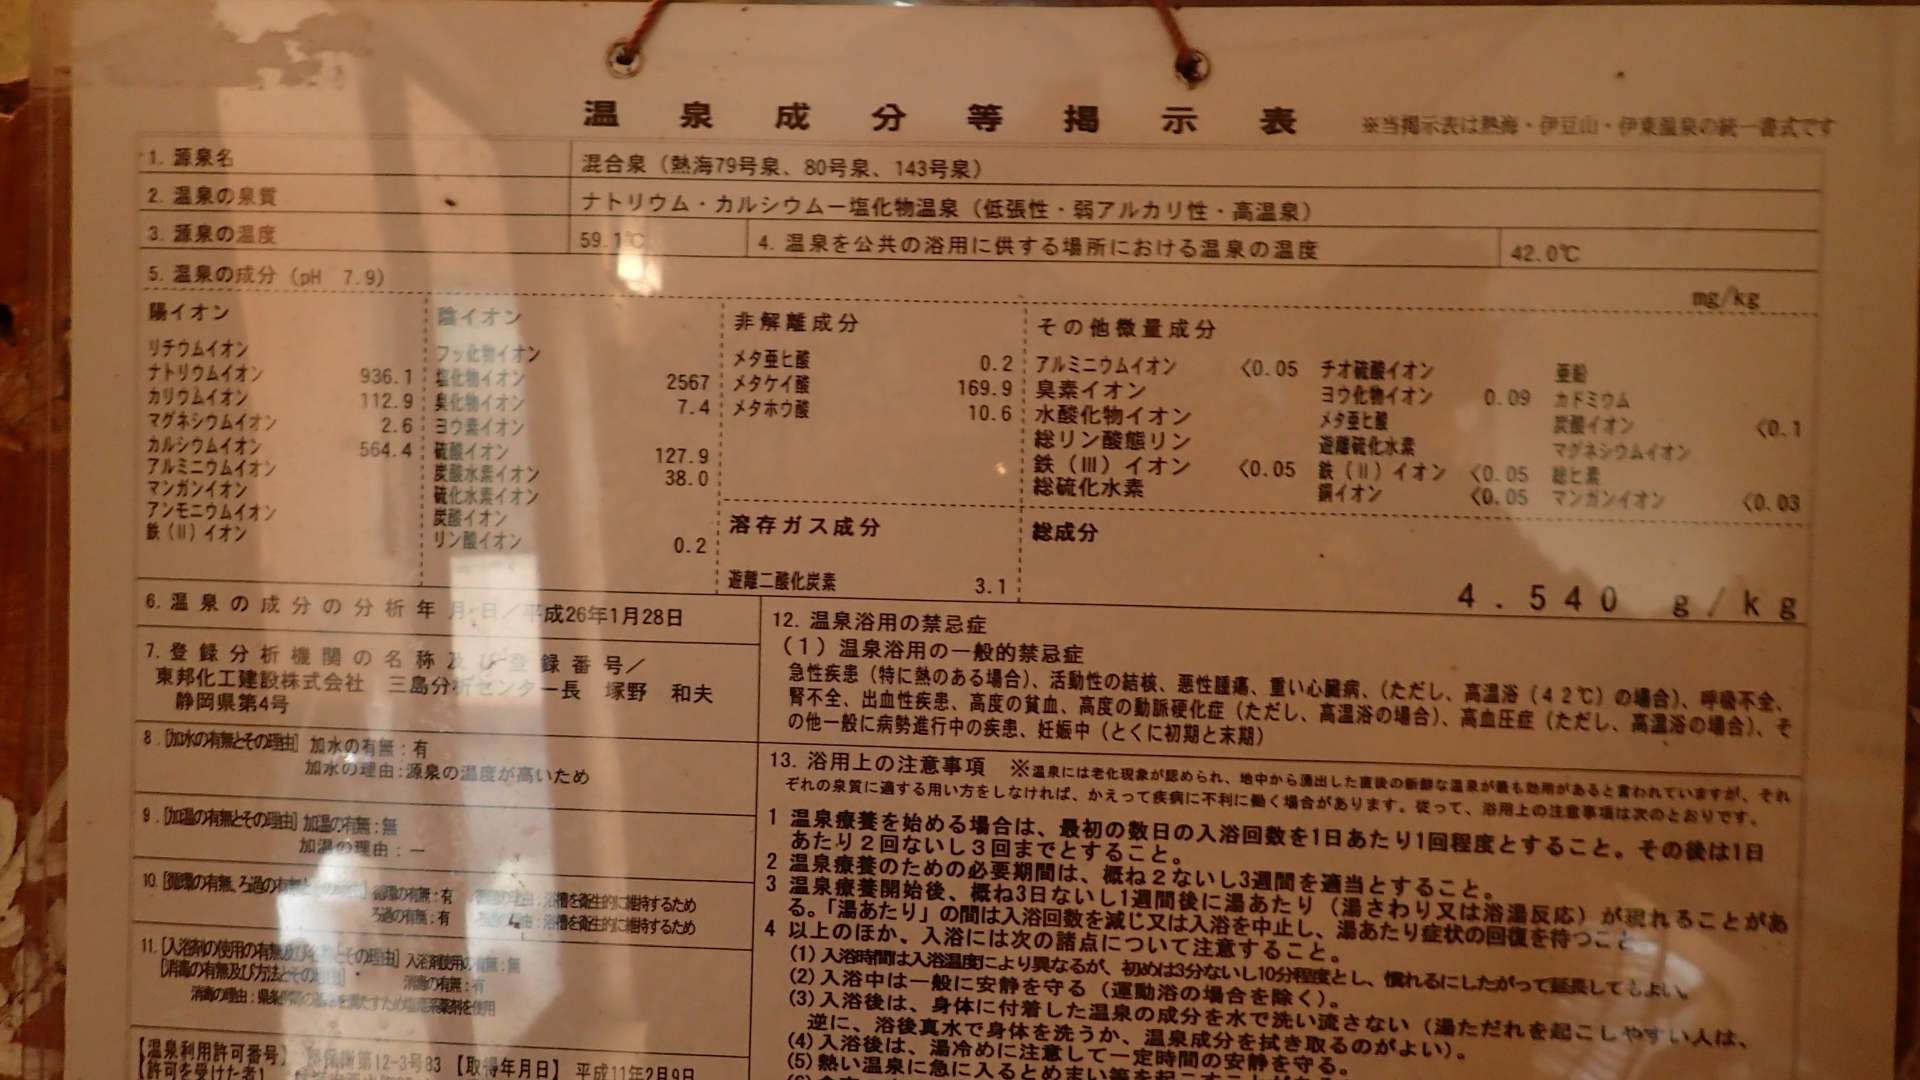 温泉成分等掲示表
※当掲示表は熱海・伊豆山・伊東温泉の統一書式です
1. 源泉名 混合泉（熱海79号泉、80号泉、143号泉）
2. 温泉の泉質 ナトリウム・カルシウム－塩化物温泉（低張性・弱アルカリ性・高温泉）
3. 源泉の温度 59.1℃ 4. 温泉を公共の浴用に供する場所における温泉の温度 42.0℃
5. 温泉の成分（pH 7.9） mg/kg
陽イオン
リチウムイオン
ナトリウムイオン 936.1
カリウムイオン 112.9
マグネシウムイオン 2.6
カルシウムイオン 564.4
アルミニウムイオン
マンガンイオン
アンモニウムイオン
鉄(II)イオン
陰イオン
フッ化物イオン
塩化物イオン 2567
臭化物イオン 7.4
ヨウ素イオン
硫酸イオン 127.9
炭酸水素イオン 38.0
硫化水素イオン
炭酸イオン
リン酸イオン 0.2
非解離成分
メタ亜ヒ酸 0.2
メタケイ酸 169.9
メタホウ酸 10.6
溶存ガス成分
遊離二酸化炭素 3.1
その他微量成分
アルミニウムイオン <0.05 チオ硫酸イオン 亜鉛
臭素イオン ヨウ化物イオン 0.09 カドミウム
水酸化物イオン メタ亜ヒ酸 炭酸イオン <0.1
総リン酸態リン 遊離硫化水素 マグネシウムイオン
鉄(III)イオン <0.05 鉄(II)イオン <0.05 総ヒ素
総硫化水素 銅イオン <0.05 マンガンイオン <0.03
総成分
4.540 g/kg
6. 温泉の成分の分析年月日／平成26年1月28日
7. 登録分析機関の名称及び登録番号／
東邦化工建設株式会社 三島分析センター長 塚野 和夫
静岡県第4号
8.[加水の有無とその理由] 加水の有無：有
加水の理由：源泉の温度が高いため
9.[加温の有無とその理由] 加温の有無：無
加温の理由：－
10.[循環の有無、ろ過の有無 循環の有無：有 浴槽を衛生的に維持するため
ろ過の有無：有 浴槽を衛生的に維持するため
11.[入浴剤の使用の有無及び その理由] 入浴剤使用の有無：無
[消毒の有無及び方法とその理由] 消毒の有無：有
消毒の理由：県条例 たすため塩素系薬剤を使用
【温泉利用許可番号】 第12-3号83 【取得年月日】 平成11年2月9日
【許可を受けた者】
12. 温泉浴用の禁忌症
（1）温泉浴用の一般的禁忌症
急性疾患（特に熱のある場合）、活動性の結核、悪性腫瘍、重い心臓病、（ただし、高温浴（42℃）の場合）、呼吸不全、
腎不全、出血性疾患、高度の貧血、高度の動脈硬化症（ただし、高温浴の場合）、高血圧症（ただし、高温浴の場合）、そ
の他一般に病勢進行中の疾患、妊娠中（とくに初期と末期）
13. 浴用上の注意事項 ※温泉には老化現象が認められ、地中から湧出した直後の新鮮な温泉が最も効用があると言われていますが、それ
ぞれの泉質に適する用い方をしなければ、かえって疾病に不利に働く場合があります。従って、浴用上の注意事項は次のとおりです。
1 温泉療養を始める場合は、最初の数日の入浴回数を1日あたり1回程度とすること。その後は1日
あたり2回ないし3回までとすること。
2 温泉療養のための必要期間は、概ね2ないし3週間を適当とすること。
3 温泉療養開始後、概ね3日ないし1週間後に湯あたり（湯さわり又は浴湯反応）が現れることがあ
る。「湯あたり」の間は入浴回数を減じ又は入浴を中止し、湯あたり症状の回復を待つこと
4 以上のほか、入浴には次の諸点について注意すること。
(1)入浴時間は入浴温度により異なるが、初めは3分ないし10分程度とし、慣れるにしたがって延長してもよい。
(2)入浴中は一般に安静を守る（運動浴の場合を除く）。
(3)入浴後は、身体に付着した温泉の成分を水で洗い流さない（湯ただれを起こしやすい人は、
逆に、浴後真水で身体を洗うか、温泉成分を拭き取るのがよい）。
(4)入浴後は、湯冷めに注意して一定時間の安静を守る。
(5)熱い温泉に急に入るとめまい等を起こすことがある